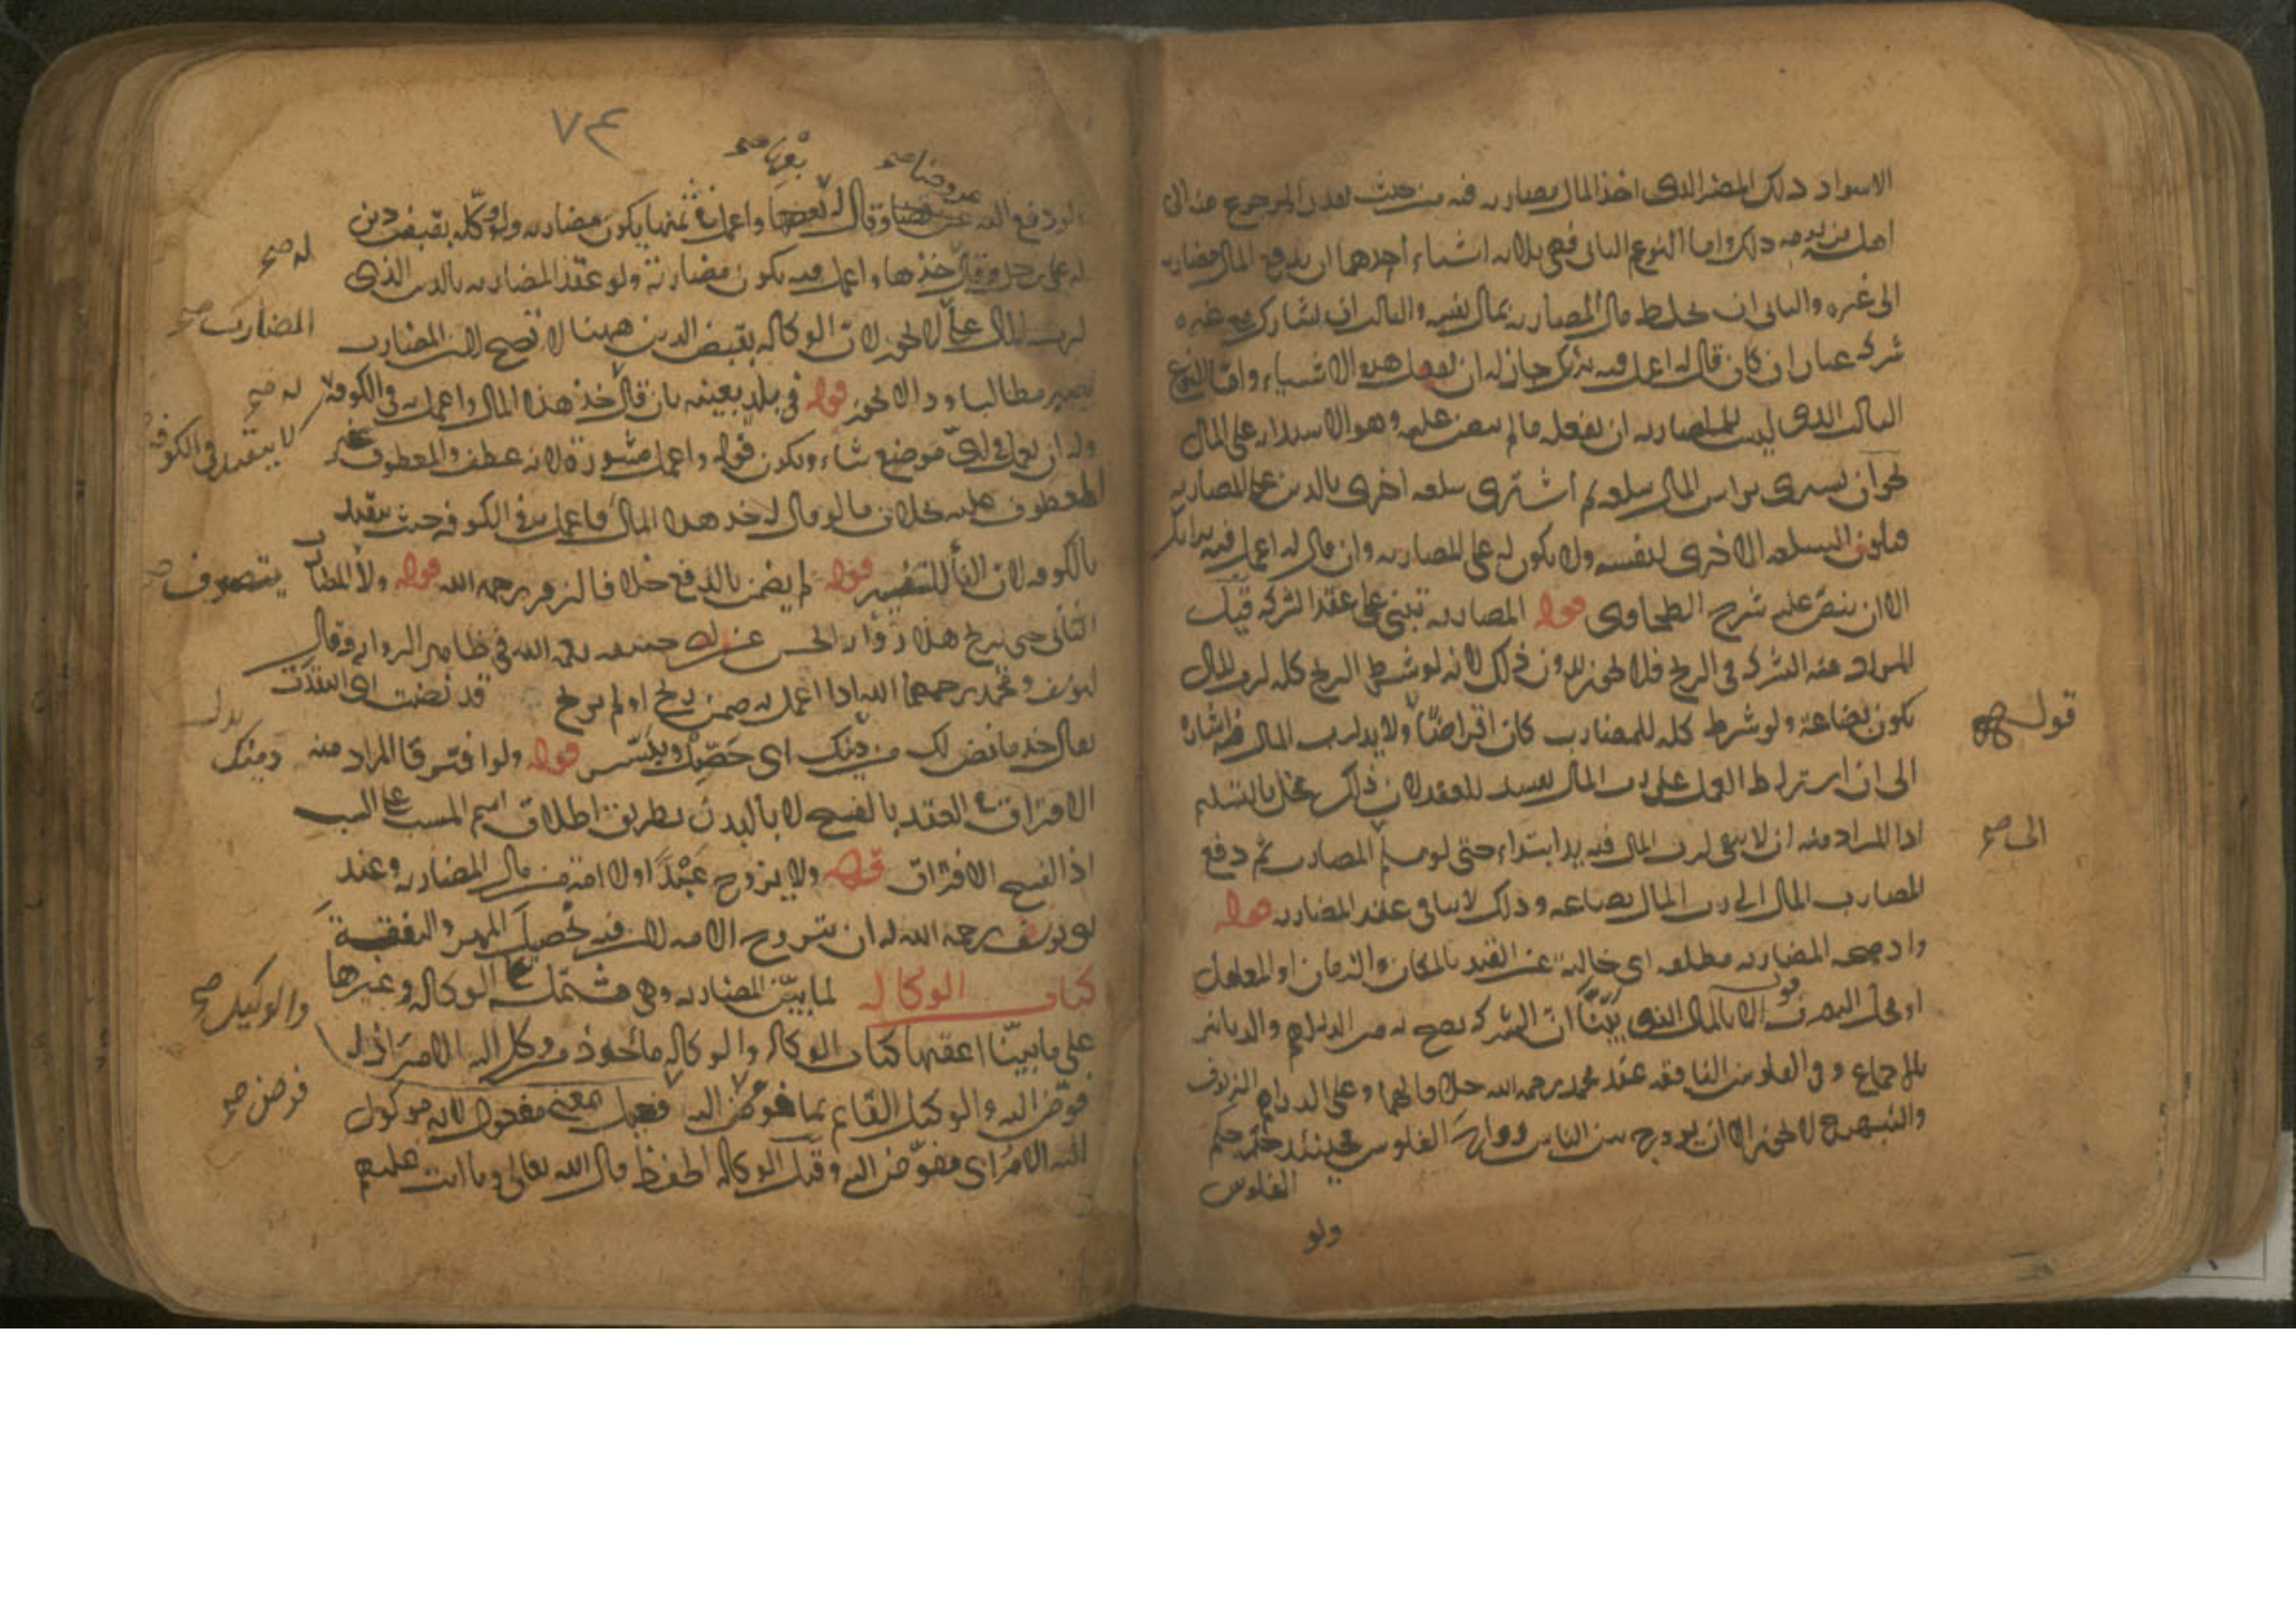 الاسواد ذلك المصر الذى اخذ المال مضاربه فيه من حيث تعذر الرجوع عنه الى
اهل ذلك واما النوع الثانى فهى ثلاثه اشياء احدهما ان يدفع المال مضاربه
الى غيره والثانى ان يخلط مال المضاربه بمال نفسه والثالث ان يشارك مع غيره
شركه عنان ان كان قال له اعمل فيه برايك جاز له ان يفعل هذه الاشياء واما النوع
الثالث الذى ليس للمضارب ان يفعله ما لم ينص عليه وهو الاستدانه على المال
نحو ان يشترى براس المال سلعه ثم اشترى سلعه اخرى بالدين على المضاربه
فيكون السلعه الاخرى لنفسه ولا يكون له على المضاربه وان قال له اعمل فيه برايك
الا ان ينص عليه شرح الطحاوى قوله المضاربه تبنى على عقد الشركه قيل
المراد عنه الشركه فى الربح فلا يجوز بدون ذلك لانه لو شرط الربح كله لرب المال
يكون بضاعة ولو شرط كله للمضارب كان اقراضا ولا يد لرب المال فيه اشارة
قوله صح
الى ان اشتراط العمل على رب المال يفسد للعقد لان ذلك مخل بالتسليم
اذا المراد منه ان لا يبقى لرب المال فيه يد ابتداء حتى لو سلم المضارب ثم دفع
الى صح
المضارب المال الى رب المال بضاعه وذلك لا ينافى عقد المضاربه قوله
واذ صحه المضاربه مطلقه اى خالية عن القيد بالمكان والزمان او المعامل
او محل التصرف قوله الا بالمال الذى بينا ان الشركه تصح به من الدراهم والدنانير
بالاجماع وفى الفلوس النافقه عند محمد رحمه الله خلافا لهما وعلى الدراهم الزيوف
والنبهرج لا يجوز الا ان يروج بين الناس رواج الفلوس فحينئذ حكمه حكم
الفلوس
ولو
٧٤
عروضا صح
بعها صح
ولو دفع اليه وقال له بعها واعمل فى ثمنها يكون مضاربه ولو وكله بقبض دين
له صح
له على رجل وقال خذها واعمل فيه يكون مضاربة ولو عقد المضاربه بالدين الذى
المضارب صح
لرب المال على لا يجوز لان الوكاله بقبض الدين ههنا لا تصح لان المضارب
يصير مطالبا وذا لا يجوز قوله فى بلد بعينه بان قال خذ هذا المال واعمل به فى الكوفة
له صح
لا يتقيد فى الكوفة
وله ان يعمل فى اى موضع شاء ويكون قوله واعمل مشورة لانه عطف والمعطوف غير
المعطوف عليه بخلاف ما لو قال له خذ هذا المال فاعمل به فى الكوفه حيث يتقيد
بالكوفه لان الفاء للتفسير قوله لم يضمن بالدفع خلافا لزفر رحمه الله قوله ولا المضارب
يتصرف صح
الثانى حتى يربح هذا رواية الحسن عن ابى حنيفه رحمه الله فى ظاهر الروايه وقال
ابو يوسف ومحمد رحمهما الله اذا اعمل به ضمن ربح او لم يربح قد نضت اى انتقدت
يقال خذ ما نض لك من دينك اى حصل وتيسر قوله ولو افترقا المراد منه
دينك
الافتراق فى العقد بالفسخ لا بالبدن بطريق اطلاق اسم المسبب على السبب
اذ الفسخ الافتراق قوله ولا يزوج عبدا ولا امة من مال المضاربه وعند
ابو يوسف رحمه الله له ان يتزوج الامه لان فيه تحصيل المهر والنفقة
كتاب الوكاله لما بين المضاربه وهى مشتملة على الوكاله وغيرها
والوكيل صح
على ما بينا اعقبها كتاب الوكاله والوكاله ماخوذ من وكل اليه الامر اذا
فوض صح
فوض اليه والوكيل القائم بما فوض اليه فعيل بمعنى مفعول لانه موكول
اليه الامر اى مفوض اليه وقيل الوكاله الحفظ قال الله تعالى وما انت عليهم